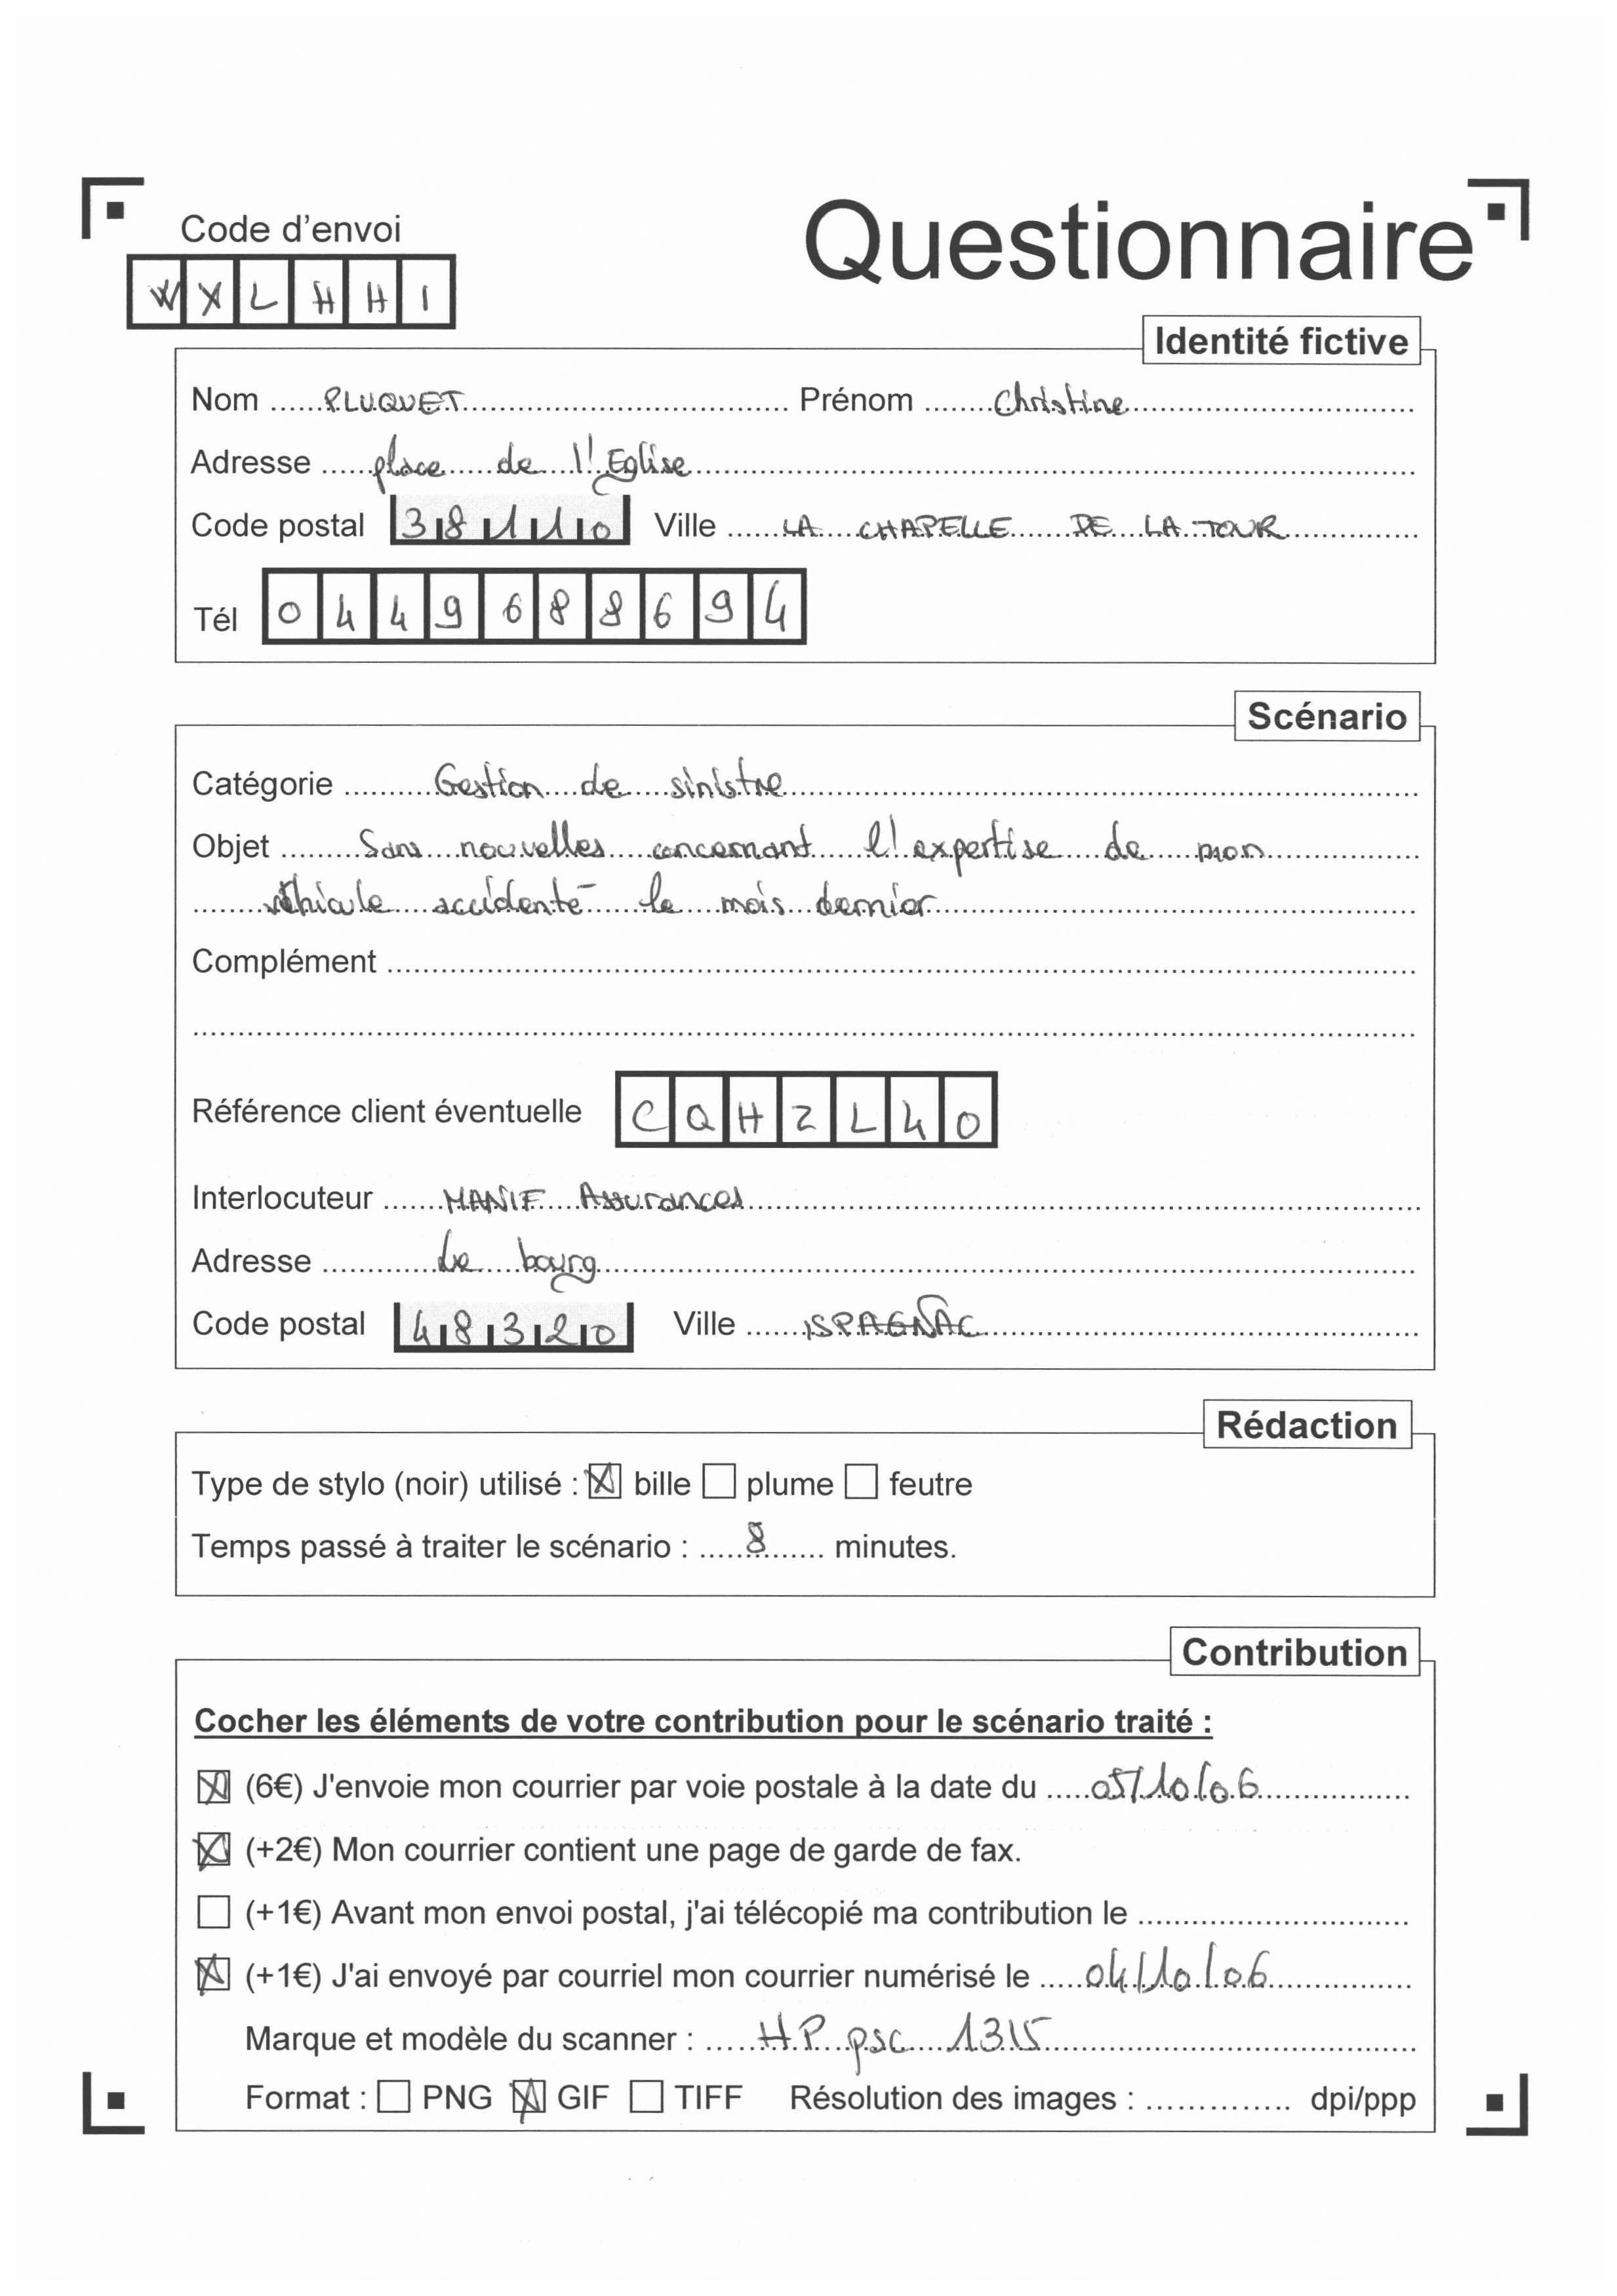 Code d'envoi
WXLHHI
Questionnaire
Identité fictive
Nom ...... PLUQUET ...... Prénom ...... Christine
Adresse ...... place de l'Eglise
Code postal 38110 Ville ...... LA CHAPELLE DE LA TOUR
Tél 0449688694
Scénario
Catégorie ...... Gestion de sinistre
Objet ...... Sans nouvelles concernant l'expertise de mon
véhicule accidenté le mois dernier
Complément ......
Référence client éventuelle CQHZL40
Interlocuteur ...... MANIF Assurances
Adresse ...... Le bourg
Code postal 48320 Ville ...... ISPAGNAC
Rédaction
Type de stylo (noir) utilisé : ☒ bille ☐ plume ☐ feutre
Temps passé à traiter le scénario : ...... 8 ...... minutes.
Contribution
Cocher les éléments de votre contribution pour le scénario traité :
☒ (6€) J'envoie mon courrier par voie postale à la date du ..... 05/10/06
☒ (+2€) Mon courrier contient une page de garde de fax.
☐ (+1€) Avant mon envoi postal, j'ai télécopié ma contribution le ......
☒ (+1€) J'ai envoyé par courriel mon courrier numérisé le ..... 04/10/06
Marque et modèle du scanner : ...... HP psc 1315
Format : ☐ PNG ☒ GIF ☐ TIFF Résolution des images : ...... dpi/ppp